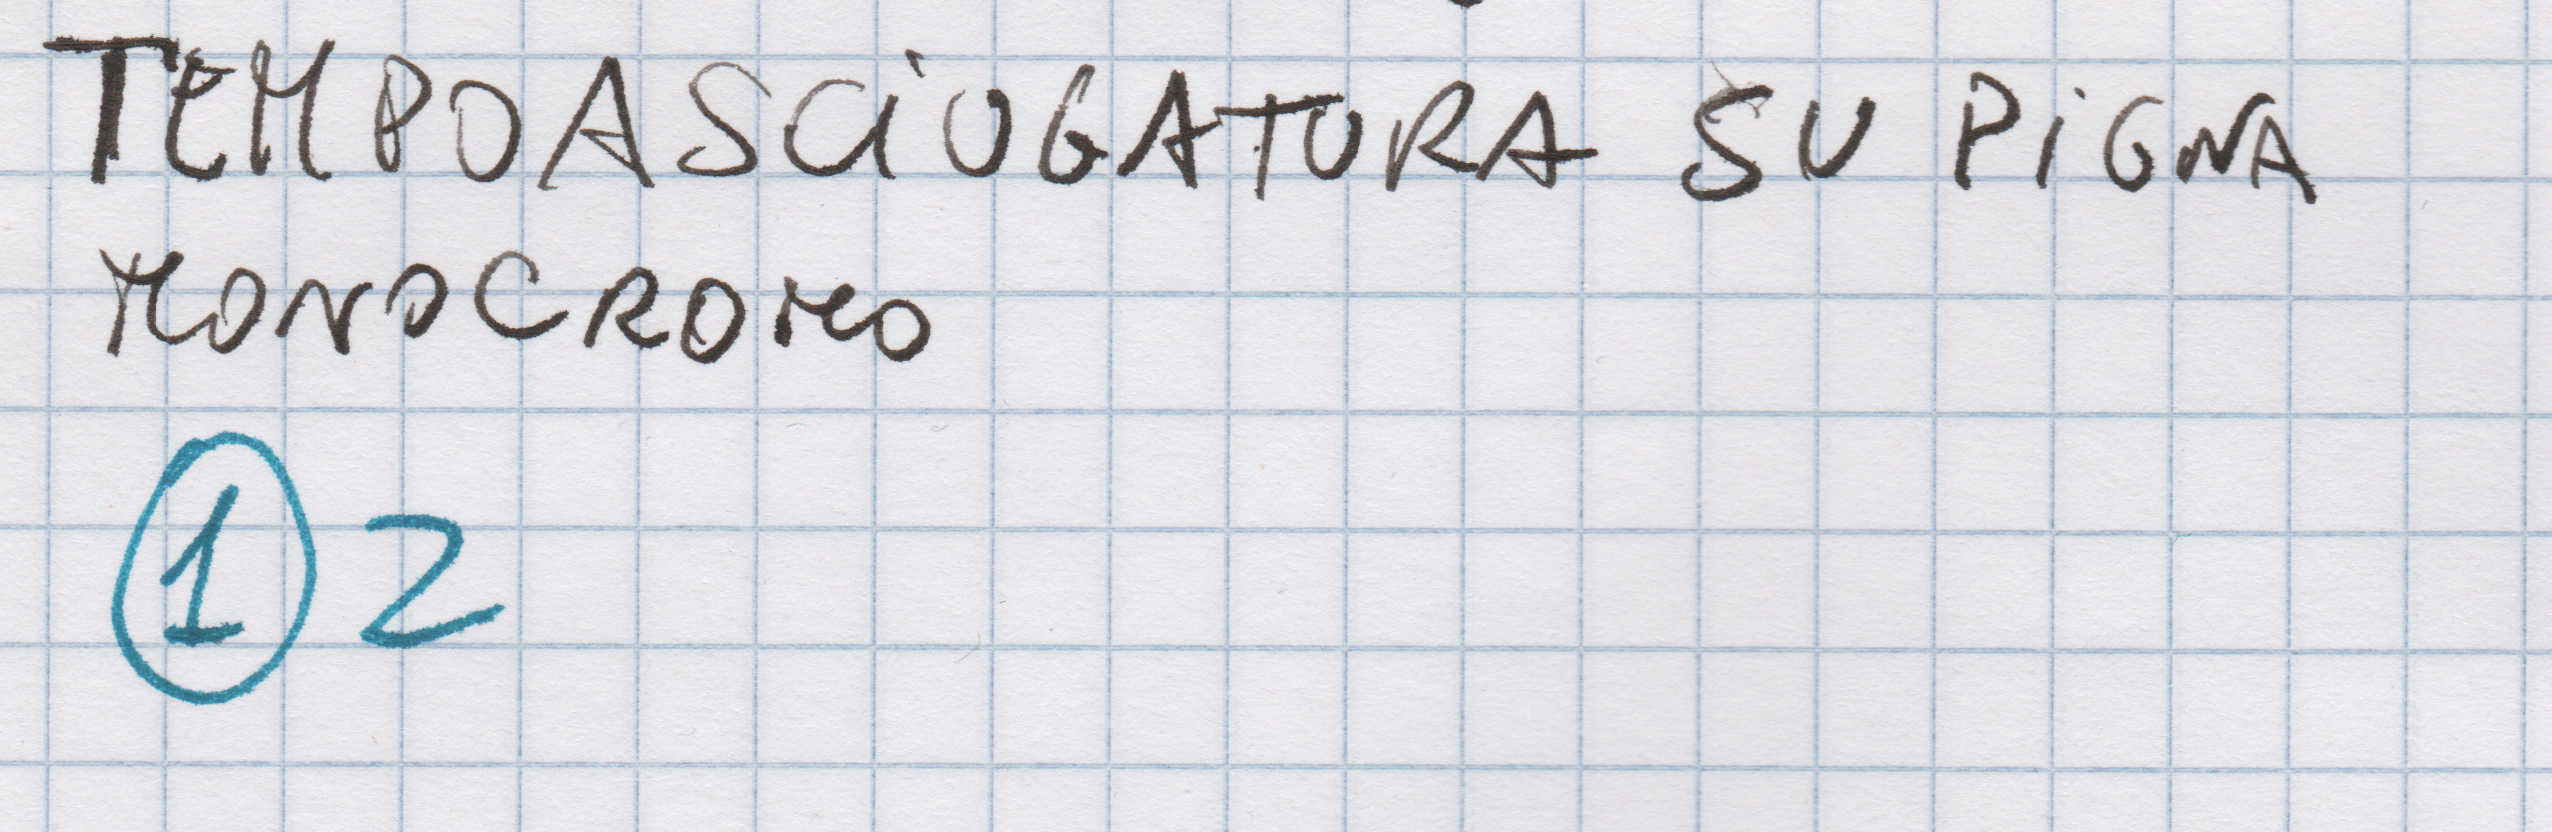 TEMPO ASCIUGATURA SU PIGNA
MONOCROMO
1 2